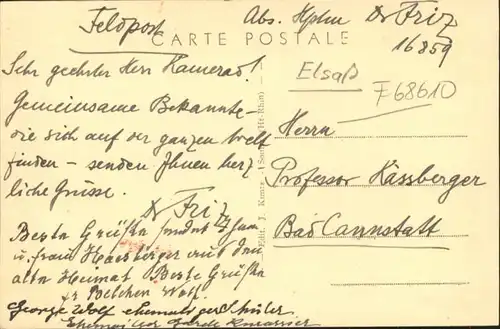 Feldpost
Abs. Hptm Dr Friz
16859
CARTE POSTALE
Elsaß
F68610
Sehr geehrter Herr Kamerad!
Gemeinsame Bekannte -
die sich auf der ganzen Welt
finden - senden Ihnen herz
liche Grüsse.
Dr Friz
Beste Grüße sendet Ihnen
u. frau Haesberger aus der
alte Heimat Beste Grüße
Belchen Wolf
George Wolf ehemaliger Schüler
Garde
Herrn
Professor Hässberger
Bad Cannstatt
Edit. J. Kimtz, (Ht-Rhin)